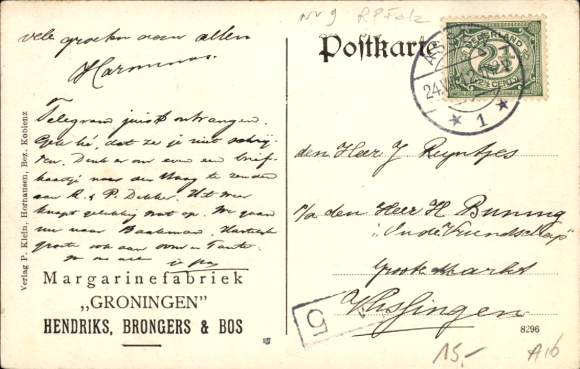 vele groeten aan allen
Harmannus.
Telegram juist ontvangen.
dat ze je niet schrij-
ven. Denk er om even een brief-
kaartje naar den Haag te zenden
aan R. & P. Dekker. Het weer
knapt gelukkig wat op. We gaan
nu naar Hartelijk
groete ook aan oom en Tante.
Margarinefabriek
„GRONINGEN"
HENDRIKS, BRONGERS & BOS
Verlag P. Klein, Hermansen, Bez. Koblenz
Nr 9 RPfalz
Postkarte
NEDERLAND
2½
2½ CENT
24.
1
den Heer J. Ruyntjes
p/a den Heer H. Buning
„In de Vriendschap"
Groote Markt
Vlissingen
5
8296
15,- A16